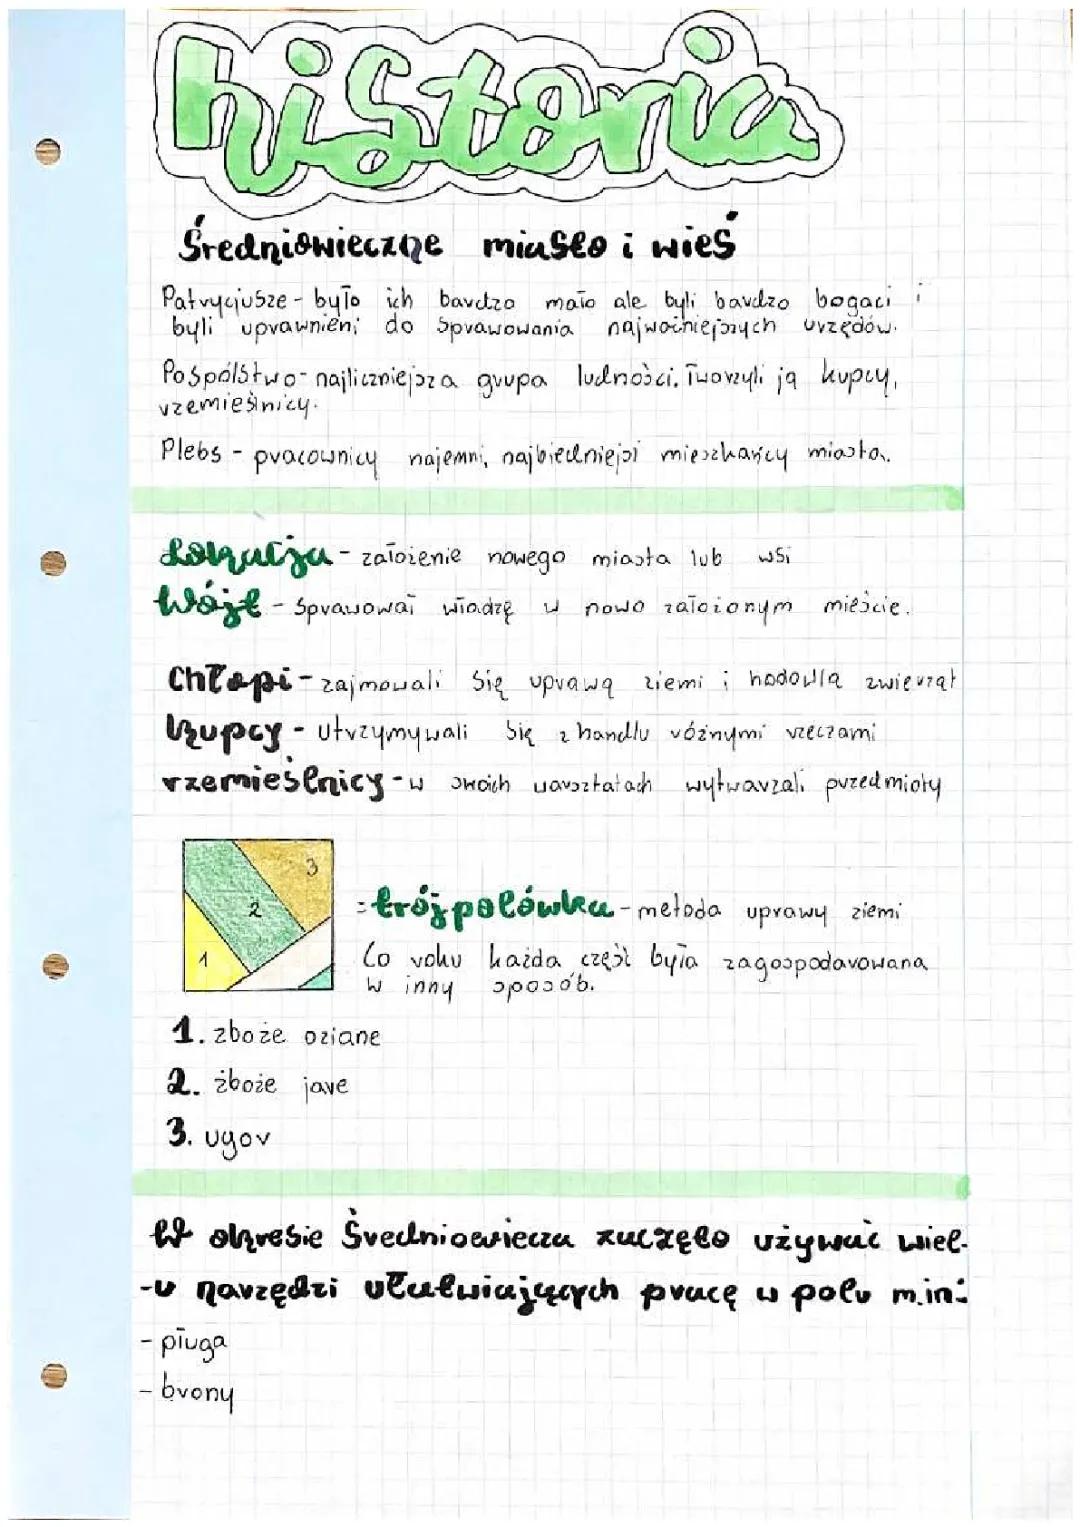 historia
Średniowieczne miasto i wieś
Patrycjusze - było ich bardzo mało ale byli bardzo bogaci i
byli uprawnieni do sprawowania najważniejszych urzędów.
Pospólstwo - najliczniejsza grupa ludności. Tworzyli ją kupcy,
rzemieśnicy.
Plebs - pracownicy najemni, najbiedniejsi mieszkańcy miasta.
Lokacja - założenie nowego miasta lub wsi
Wójt - sprawował władzę w nowo założonym mieście.
Chłopi - zajmowali się uprawą ziemi i hodowlą zwierząt
Kupcy - utrzymywali się z handlu różnymi rzeczami
rzemieślnicy - w swoich warsztatach wytwarzali przedmioty
3
2
1
= trójpolówka - metoda uprawy ziemi
Co roku każda część była zagospodarowana
w inny sposób.
1. zboże oziane
2. zboże jare
3. ugor
W okresie średniowiecza zaczęto używać wiel-
-u narzędzi ułatwiających pracę w polu m.in:
- pługa
- brony